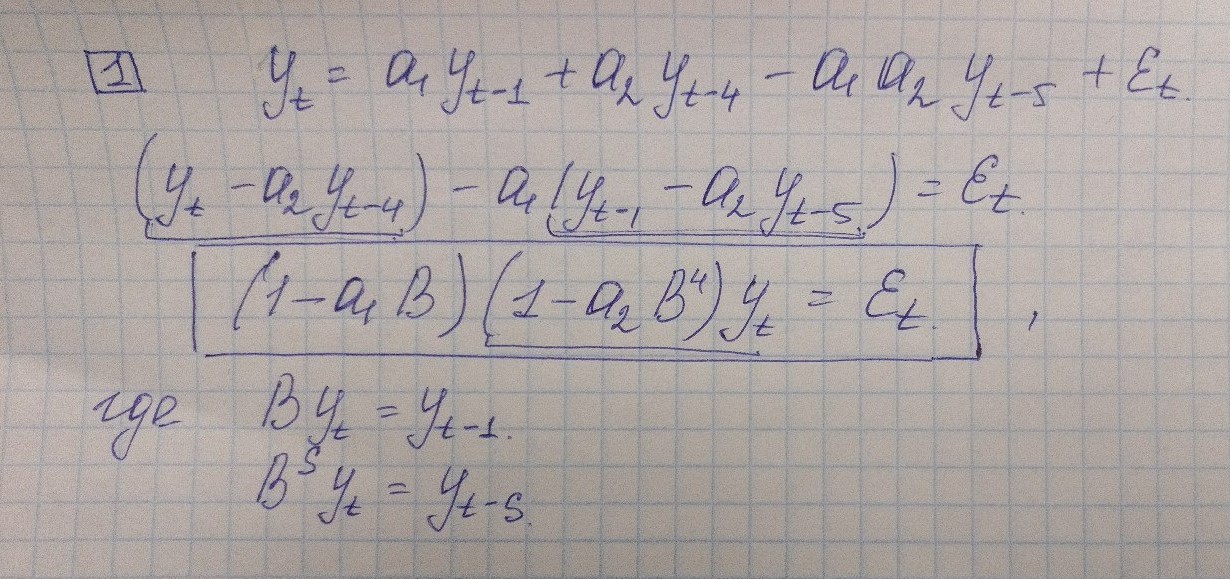 1 yₜ = a₁ yₜ₋₁ + a₂ yₜ₋₄ − a₁ a₂ yₜ₋₅ + εₜ.
(yₜ − a₂ yₜ₋₄) − a₁ (yₜ₋₁ − a₂ yₜ₋₅) = εₜ.
(1 − a₁ B) (1 − a₂ B⁴) yₜ = εₜ. ,
где B yₜ = yₜ₋₁.
Bˢ yₜ = yₜ₋ₛ.